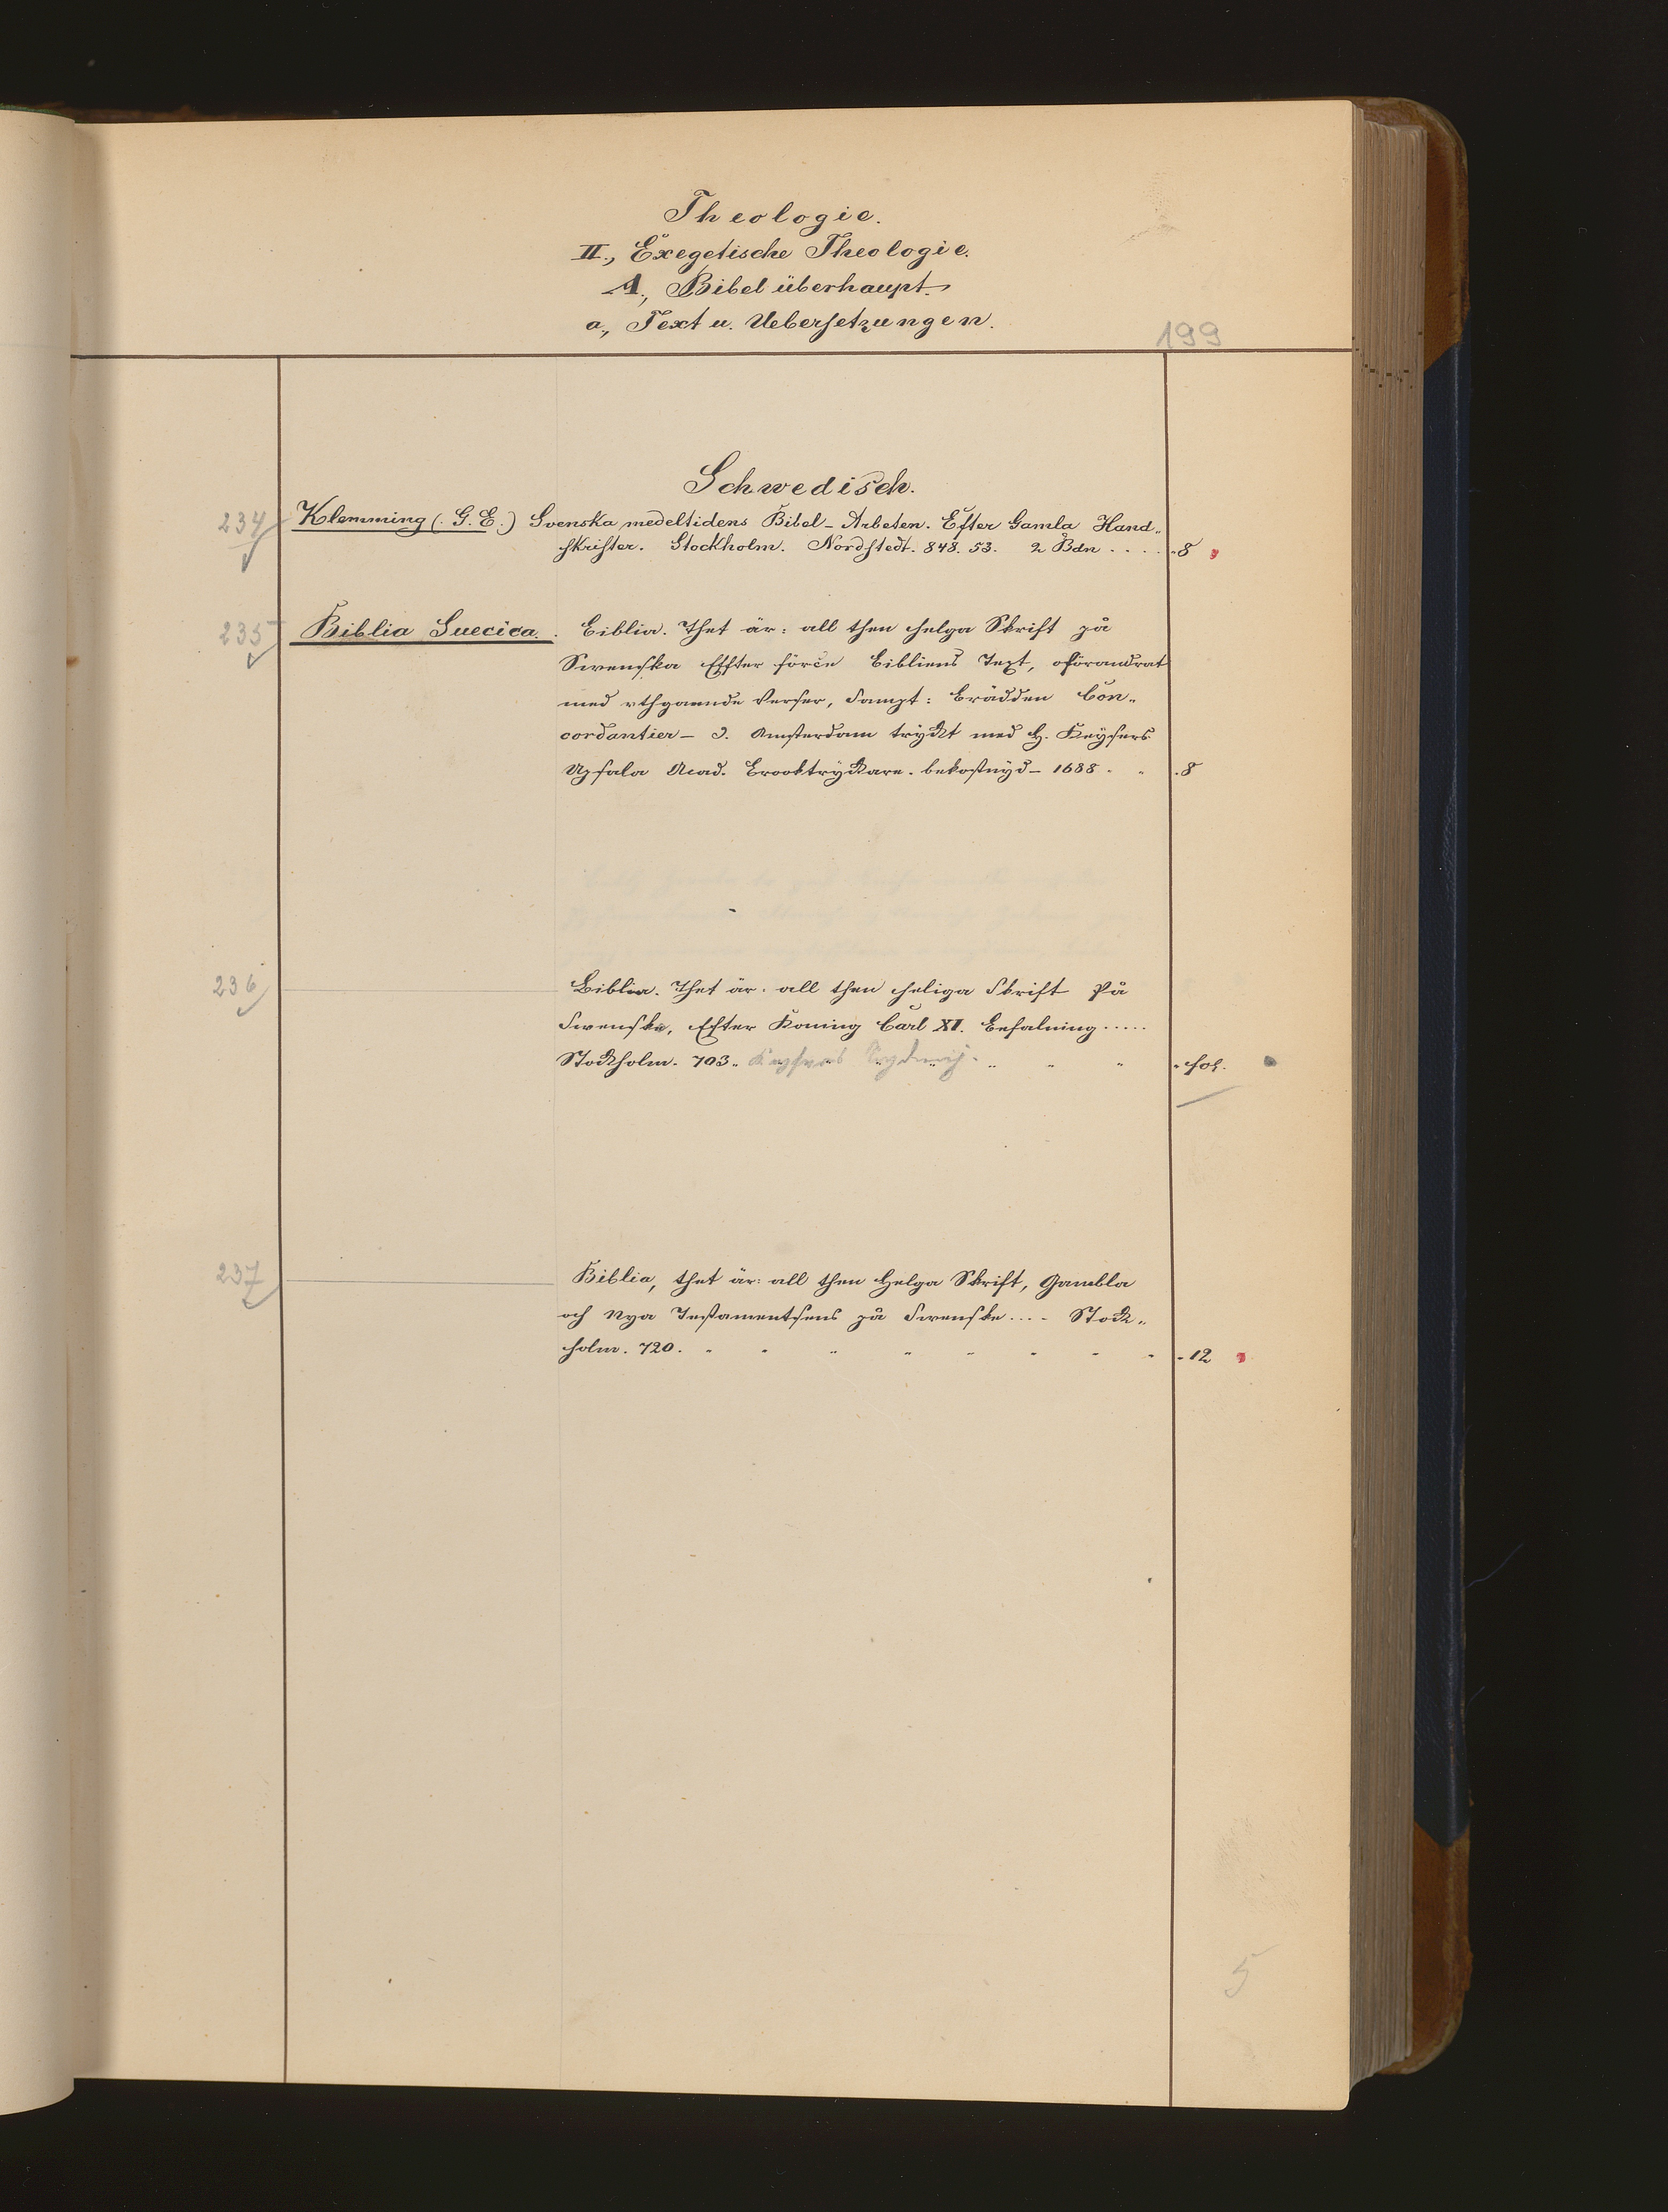 Theologie.
II., Exegetische Theologie.
A., Bibel überhaupt.
a., Text u. Uebersetzungen.
199
Schwedisch.
234 Klemming (. G. E.) Svenska medeltidens Bibel-Arbeten. Efter Gamla Hand-
skrifter. Stockholm. Nordstedt. 848. 53. 2 Bdn . . . . 8
235 Biblia Suecica. Biblia. Thet är: all then helga Skrift på
Swenska Effter förre Bibliens Text, oförandrat
med rthgaende Verser, Sampt: Brädden Con-
cordantier – J. Amsterdam tryckt med H. Keysers
Upsala Acad. Brooktryckare. bekostnyd – 1688 . 8
236 Biblia. Thet är. all then heliga Skrift På
Swenske, Efter Koning Carl XI. Befalning .....
Stockholm. 703. Keysers . fol.
237 Biblia, thet är: all then Helga Skrift, Gambla
och Nya Testamentsens på Swenske .... Stock-
holm. 720. 12
5